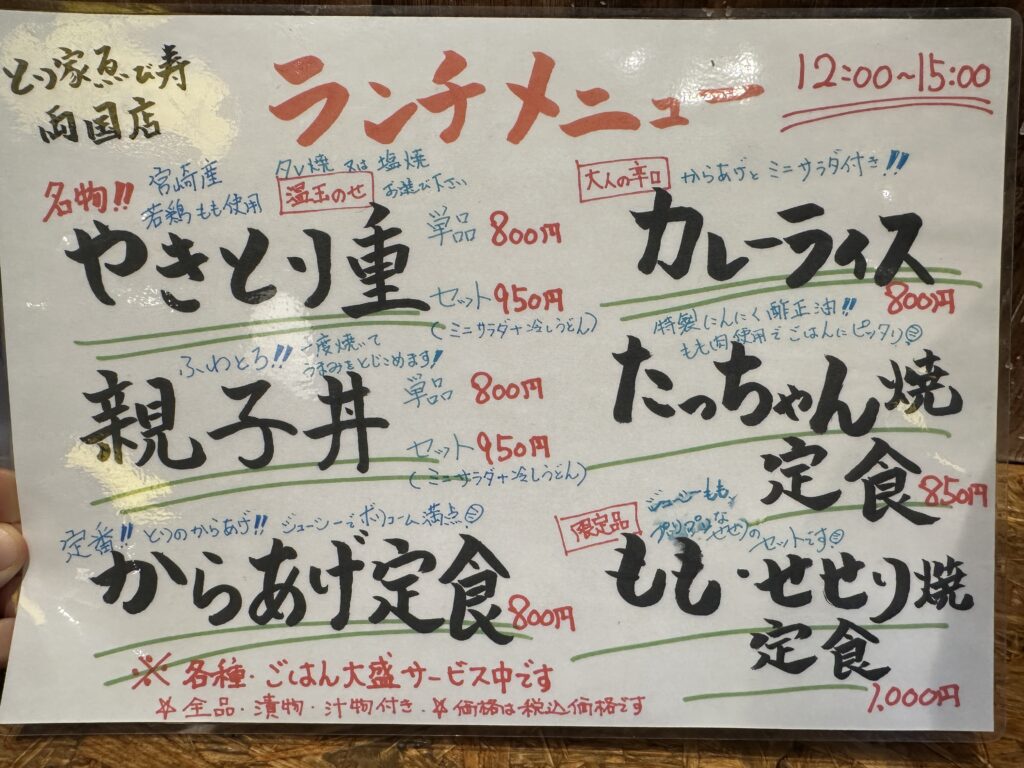 とり家ゑび寿
両国店
ランチメニュー
12:00~15:00
名物!!
宮崎産
若鶏もも使用
タレ焼 又は 塩焼
お選び下さい
温玉のせ
やきとり重
単品 800円
セット 950円
(ミニサラダ+冷しうどん)
ふわとろ!!
二度焼いて
うまみをとじこめます!
親子丼
単品 800円
セット 950円
(ミニサラダ+冷しうどん)
定番!! とりのからあげ!! ジューシーでボリューム満点
からあげ定食
800円
大人の辛口
からあげとミニサラダ付き!!
カレーライス
800円
特製にんにく醤正油!!
もも肉使用でごはんにピッタリ
たっちゃん焼
定食
850円
限定品
ジューシーもも
プリプリなせせりのセットです
もも・せせり焼
定食
1,000円
※各種・ごはん大盛サービス中です
☆全品・漬物・汁物付き ☆価格は税込価格です